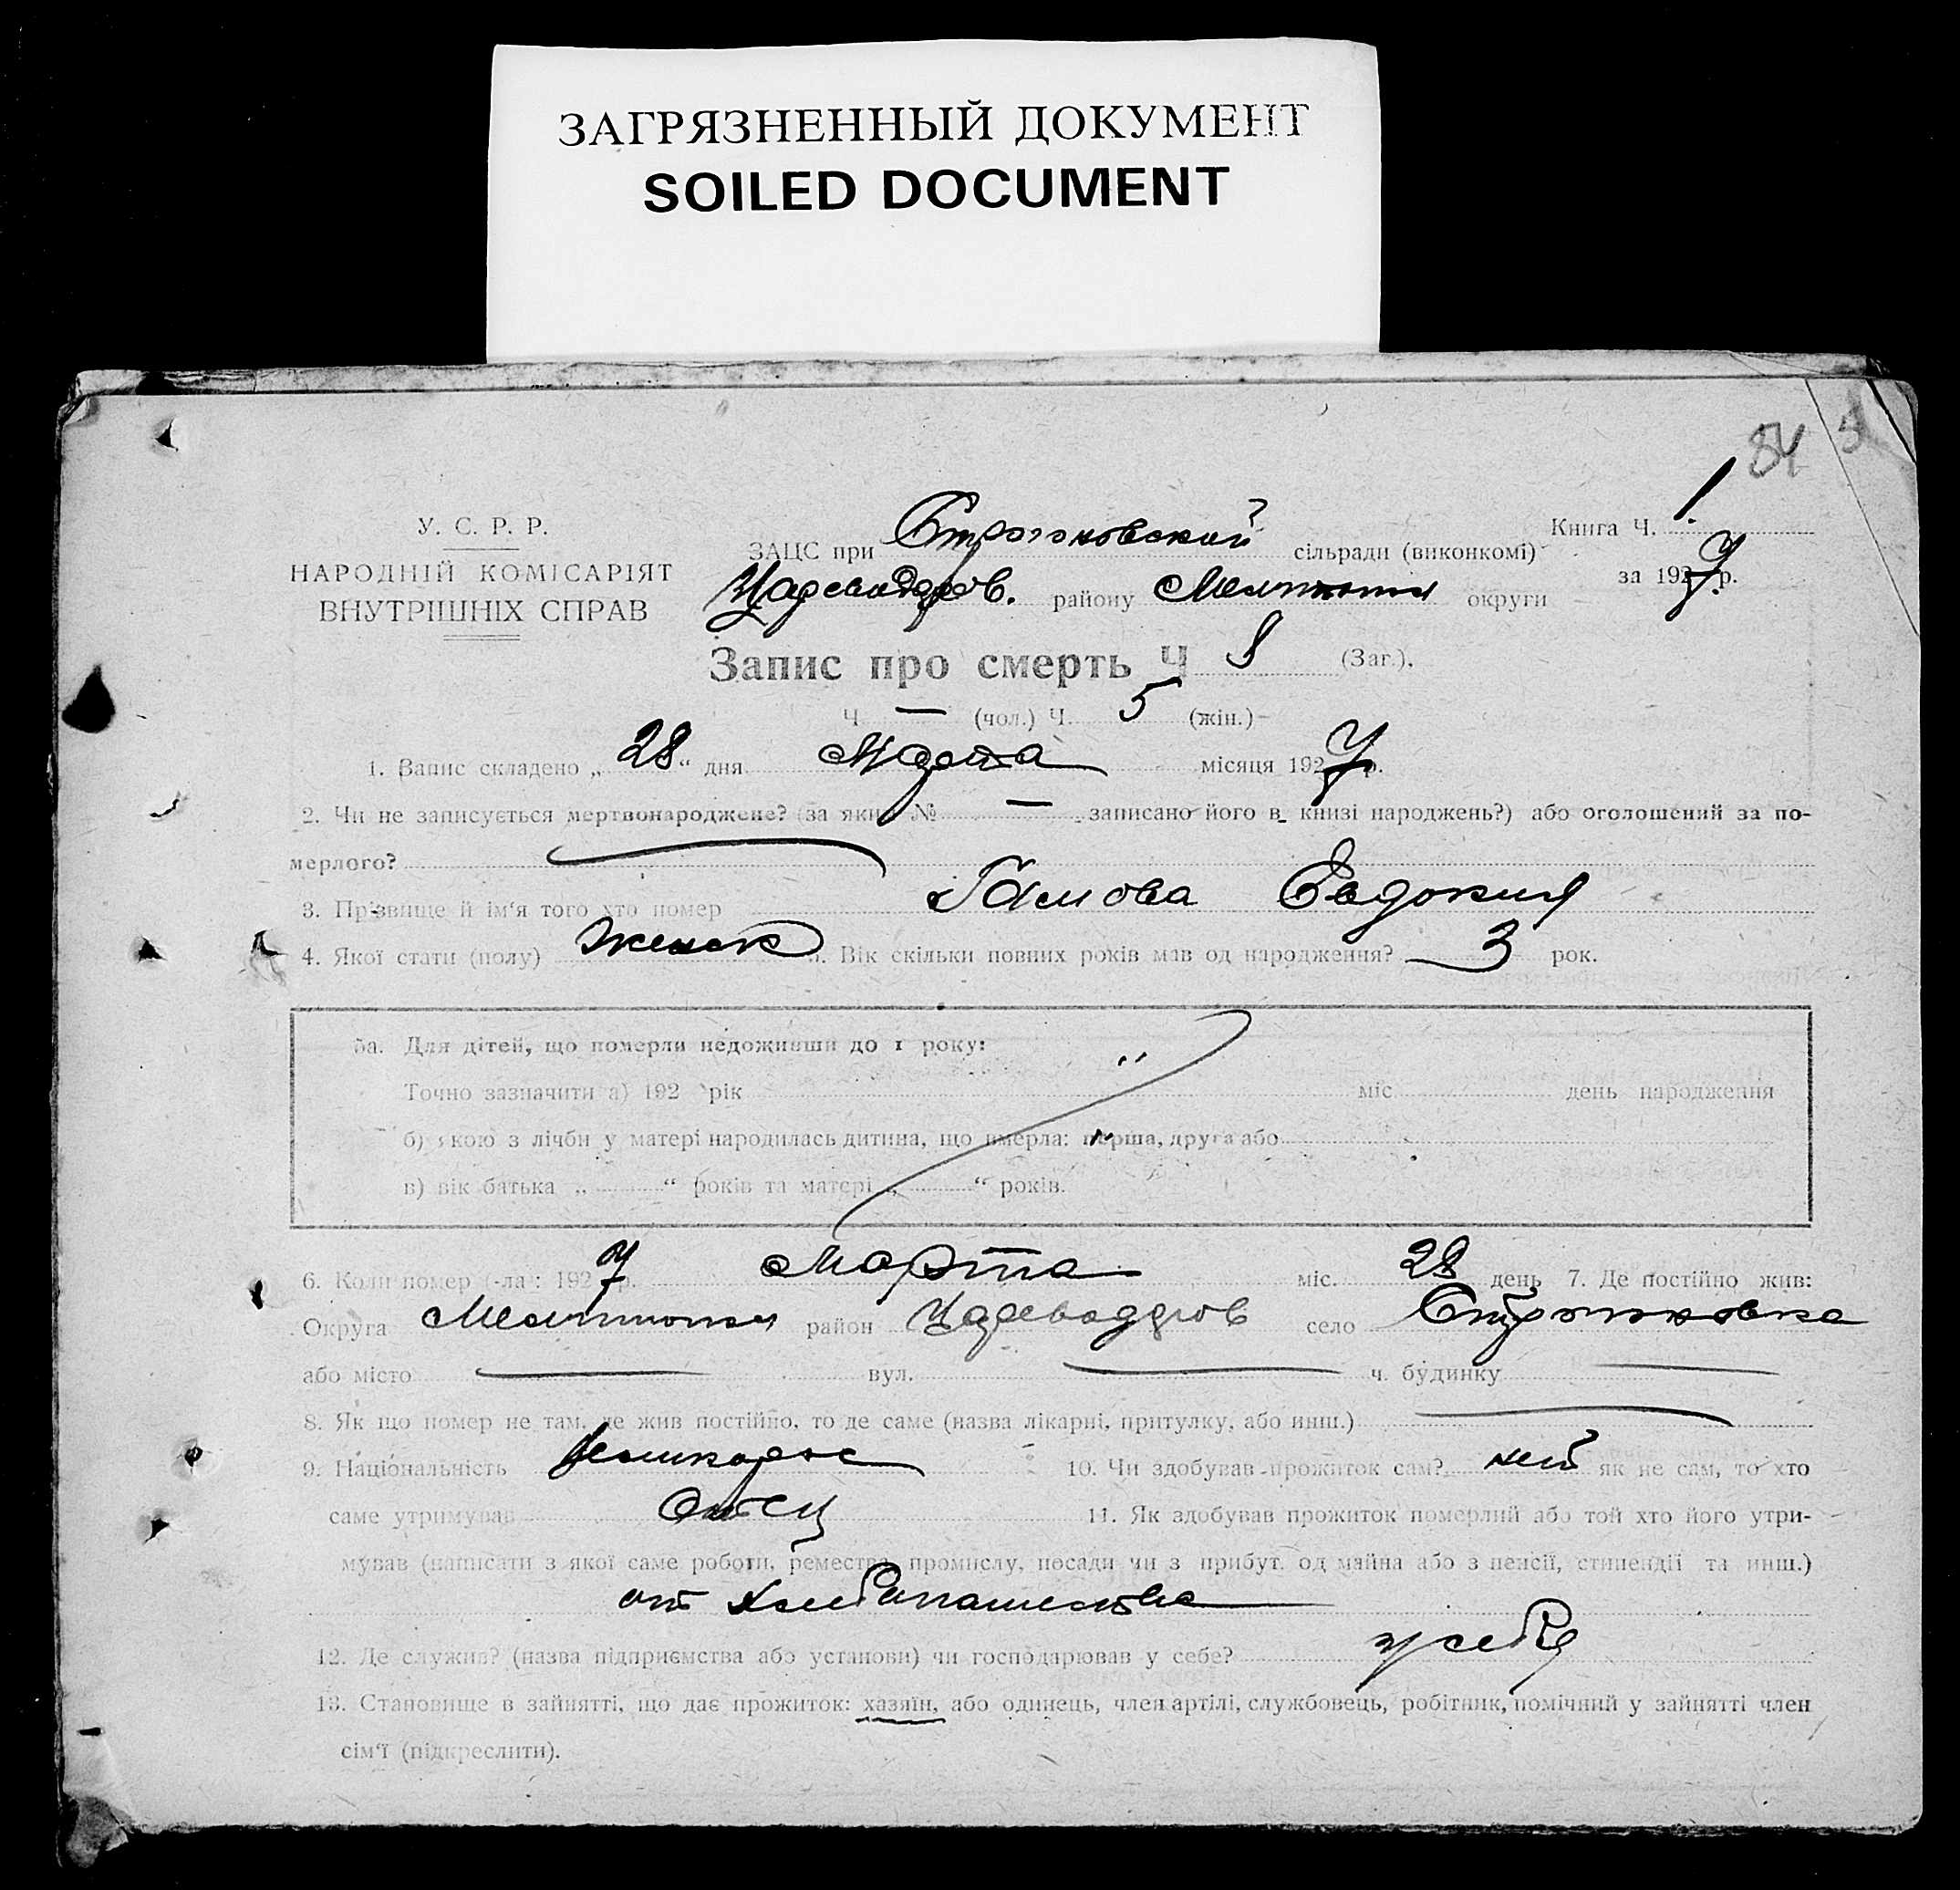 ЗАГРЯЗНЕННЫЙ ДОКУМЕНТ
SOILED DOCUMENT
84
У. С. Р. Р.
НАРОДНІЙ КОМІСАРІЯТ
ВНУТРІШНІХ СПРАВ
Книга Ч. 1
за 1927 р.
ЗАЦС при сільради (виконкомі)
району округи
Запис про смерть Ч 8 (Заг.).
Ч — (чол.) Ч. 5 (жін.)
1. Запис складено „28“ дня Марта місяця 1927 р.
2. Чи не записується мертвонароджене? (за яким № — записано його в книзі народжень?) або оголошений за по-
мерлого? —
3. Прізвище й ім'я того хто помер Гамова Евдокия
4. Якої стати (полу) женск 5. Вік скільки повних років мав од народження? 3 рок.
5а. Для дітей, що померли недоживши до 1 року:
Точно зазначити а) 192 рік міс. день народження
б) якою з лічби у матері народилась дитина, що вмерла: перша, друга або
в) вік батька „ “ років та матері „ “ років.
6. Коли помер (-ла): 1927 р. Марта міс. 28 день 7. Де постійно жив:
Округа район село
або місто — вул. — ч. будинку —
8. Як що помер не там, де жив постійно, то де саме (назва лікарні, притулку, або инш.) —
9. Національність 10. Чи здобував прожиток сам? нет як не сам, то хто
саме утримував Отец 11. Як здобував прожиток померлий або той хто його утри-
мував (написати з якої саме роботи, ремества, промислу, посади чи з прибут. од майна або з пенсії, стипендії та инш.)
от хлебопашества
12. Де служив? (назва підприємства або установи) чи господарював у себе? у себя
13. Становище в зайнятті, що дає прожиток: хазяїн, або одинець, член артілі, службовець, робітник, помічний у зайнятті член
сім'ї (підкреслити).